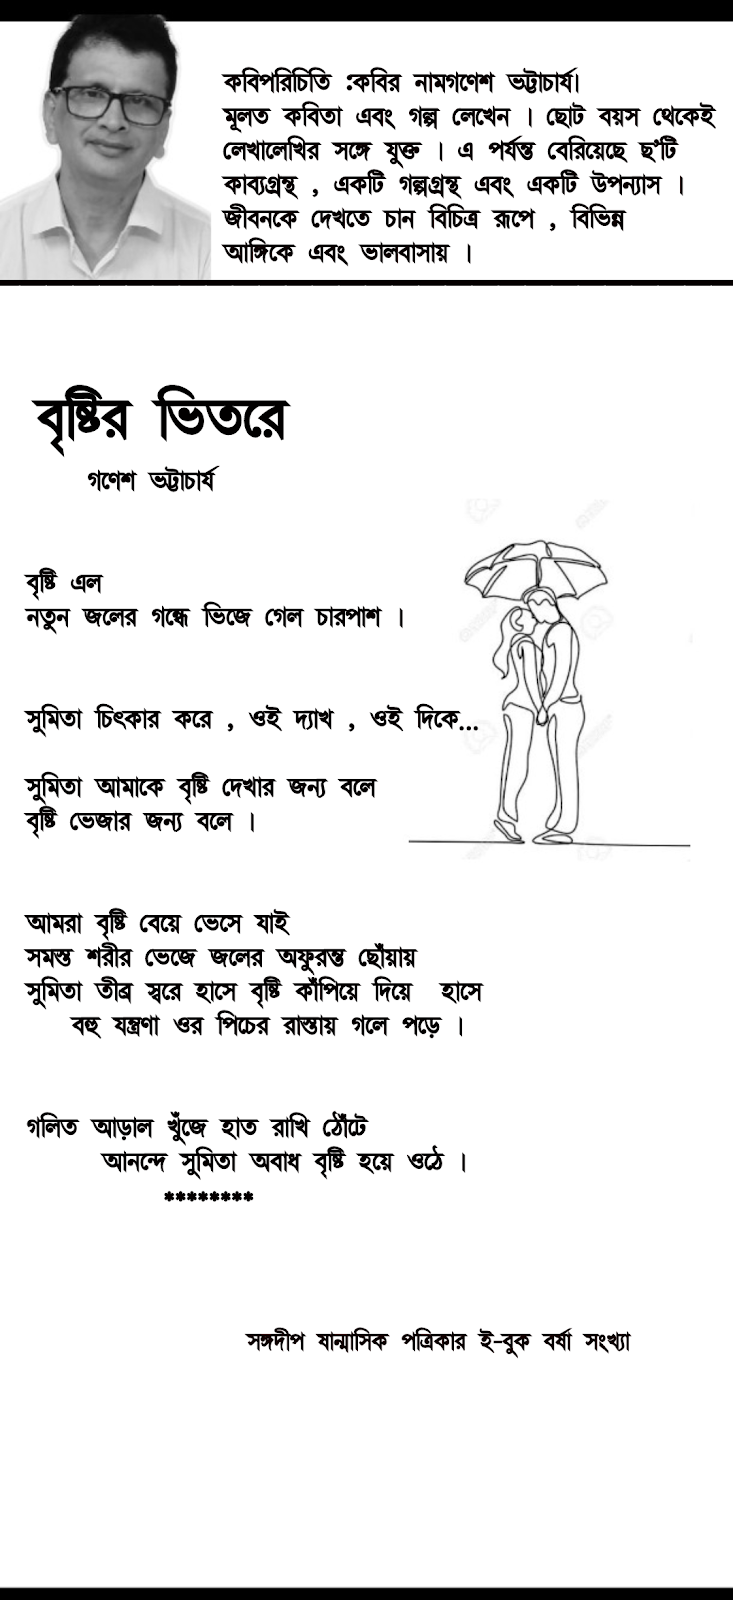 কবিপরিচিতি :কবির নামগণেশ ভট্টাচার্য।
মূলত কবিতা এবং গল্প লেখেন । ছোট বয়স থেকেই
লেখালেখির সঙ্গে যুক্ত । এ পর্যন্ত বেরিয়েছে ছ'টি
কাব্যগ্রন্থ , একটি গল্পগ্রন্থ এবং একটি উপন্যাস ।
জীবনকে দেখতে চান বিচিত্র রূপে , বিভিন্ন
আঙ্গিকে এবং ভালবাসায় ।
বৃষ্টির ভিতরে
গণেশ ভট্টাচার্য
বৃষ্টি এল
নতুন জলের গন্ধে ভিজে গেল চারপাশ ।
সুমিতা চিৎকার করে , ওই দ্যাখ , ওই দিকে...
সুমিতা আমাকে বৃষ্টি দেখার জন্য বলে
বৃষ্টি ভেজার জন্য বলে ।
আমরা বৃষ্টি বেয়ে ভেসে যাই
সমস্ত শরীর ভেজে জলের অফুরন্ত ছোঁয়ায়
সুমিতা তীব্র স্বরে হাসে বৃষ্টি কাঁপিয়ে দিয়ে হাসে
বহু যন্ত্রণা ওর পিচের রাস্তায় গলে পড়ে ।
গলিত আড়াল খুঁজে হাত রাখি ঠোঁটে
আনন্দে সুমিতা অবাধ বৃষ্টি হয়ে ওঠে ।
********
সঙ্গদীপ ষান্মাসিক পত্রিকার ই-বুক বর্ষা সংখ্যা